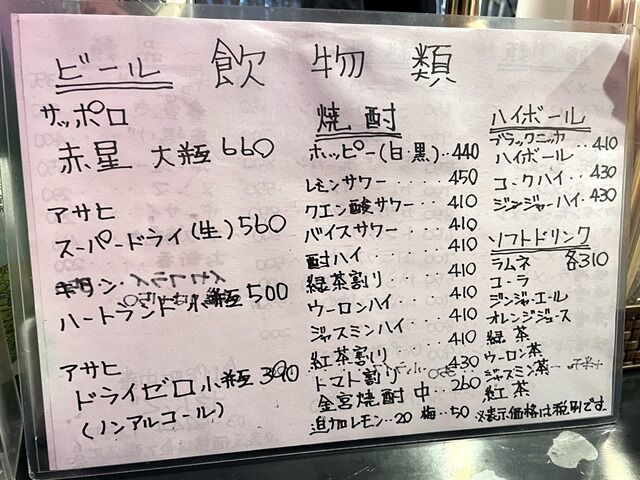 飲物類
ビール
サッポロ
赤星 大瓶 660
アサヒ
スーパードライ(生) 560
キリン
ハートランド 小瓶 500
アサヒ
ドライゼロ 小瓶 390
(ノンアルコール)
焼酎
ホッピー(白・黒)‥440
レモンサワー‥‥450
クエン酸サワー‥410
バイスサワー‥‥410
酎ハイ‥‥410
緑茶割り‥‥410
ウーロンハイ‥‥410
ジャスミンハイ‥‥410
紅茶割り‥‥410
トマト割り 430
金宮焼酎 中‥260
追加レモン‥20 梅‥50 ※表示価格は税別です。
ハイボール
ブラックニッカ
ハイボール‥‥410
コークハイ‥‥430
ジンジャーハイ‥430
ソフトドリンク
ラムネ 各310
コーラ
ジンジャエール
オレンジジュース
緑茶
ウーロン茶
ジャスミン茶
紅茶